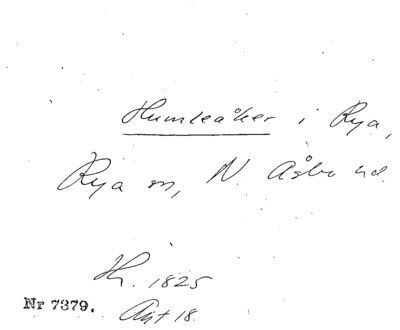 Humleåker i Rya,
Rya sn, N. Åsbo hd.
H. 1825
Nr 7379.
Akt 18.